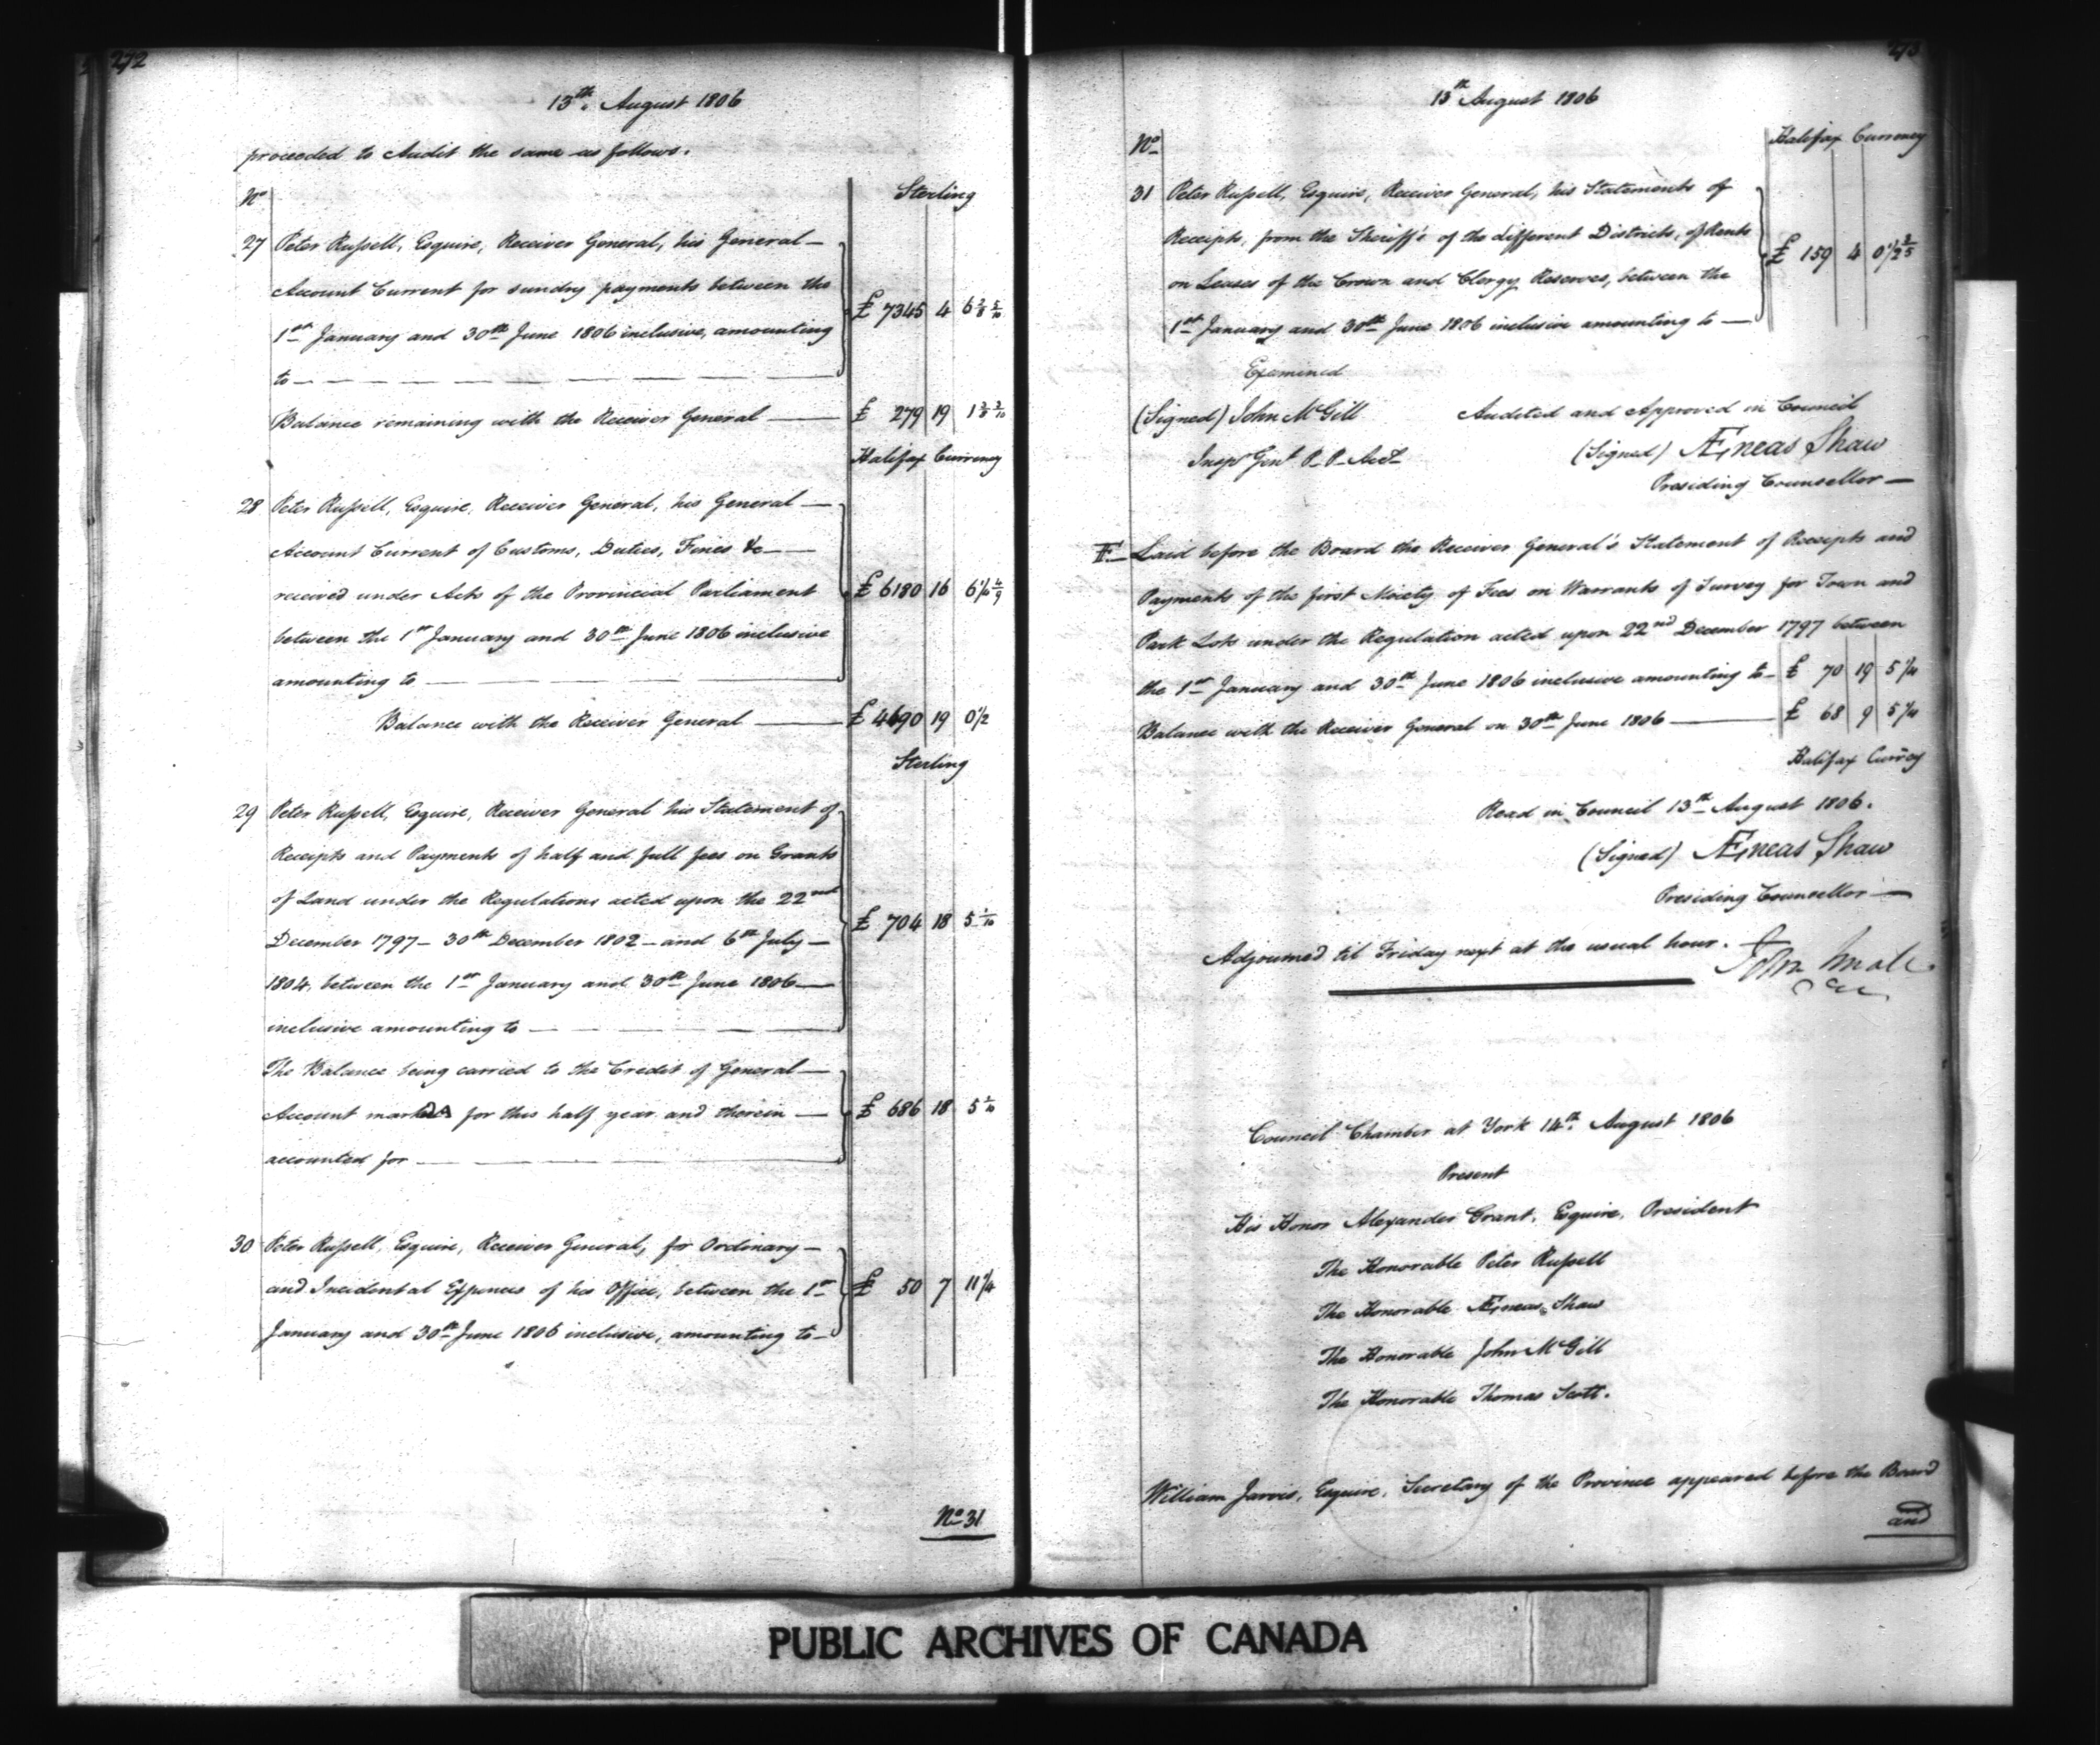 272
13th. August 1806
proceeded to Audit the same as follows.
No
Sterling
27 Peter Russell, Esquire, Receiver General, his General —
Account Current for sundry payments between the
1st January and 30th June 1806 inclusive, amounting
to — £ 7345 4 6
Balance remaining with the Receiver General — £ 279 19 1
Halifax Currency
28 Peter Russell, Esquire, Receiver General, his General —
Account Current of Customs, Duties, Fines &c —
received under Acts of the Provincial Parliament £ 6180 16 6 1/4 4/9
between the 1st January and 30th June 1806 inclusive
amounting to —
Balance with the Receiver General — £ 4690 19 0 1/2
Sterling
29 Peter Russell, Esquire, Receiver General his Statement of
Receipts and Payments of half and full fees on Grants
of Land under the Regulations acted upon the 22nd
December 1797 — 30th December 1802 — and 6th July — £ 704 18 5 1/10
1804, between the 1st January and 30th June 1806 —
inclusive amounting to —
The Balance being carried to the Credit of General —
Account marked A for this half year and therein — £ 686 18 5 1/10
accounted for —
30 Peter Russell, Esquire, Receiver General, for Ordinary —
and Incidental Expences of his Office, between the 1st £ 50 7 11 1/4
January and 30th June 1806 inclusive, amounting to —
No 31
273
13th August 1806
No
Halifax Currency
31 Peter Russell, Esquire, Receiver General, his Statements of
Receipts, from the Sheriff's of the different Districts, of Rents
on Leases of the Crown and Clergy Reserves, between the £ 159 4 0 1/2 3/5
1st January and 30th June 1806 inclusive amounting to —
Examined
(Signed) John McGill Audited and Approved in Council
Inspr Genl P. P. Acct (Signed) Æneas Shaw
Presiding Councellor —
F. — Laid before the Board the Receiver General's Statement of Receipts and
Payments of the first Moiety of Fees on Warrants of Survey for Town and
Park Lots under the Regulation acted upon 22nd December 1797 between
the 1st January and 30th June 1806 inclusive amounting to — £ 70 19 5 1/4
Balance with the Receiver General on 30th June 1806 — £ 68 9 5 1/4
Halifax Curr̄cy
Read in Council 13th August 1806.
(Signed) Æneas Shaw
Presiding Councellor —
Adjourned til Friday next at the usual hour. John Small
Council Chamber at York 14th. August 1806
Present
His Honor Alexander Grant, Esquire, President
The Honorable Peter Russell
The Honorable Æneas Shaw
The Honorable John McGill
The Honorable Thomas Scott.
William Jarvis, Esquire, Secretary of the Province appeared before the Board
and
PUBLIC ARCHIVES OF CANADA